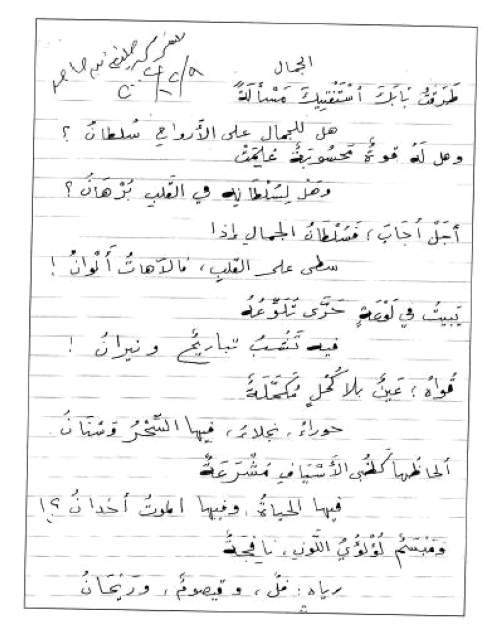 الجمال
طَرَقْتُ بَابَكَ أَسْتَفْتِيكَ مَسْأَلَةً
هل للجمال على الأرواحِ سُلطانُ ؟
وهل لَهُ قوةٌ مَحسُوبَةٌ عُلِمَتْ
وَهَلْ لِسُلْطَانِه في القَلبِ بُرْهَانُ ؟
أجَلْ أجَابَ ؛ فَسُلْطَانُ الجمالِ إذا
سطى على القلبِ ، فالآهاتُ أَلْوانُ !
يَبيتُ في لَوْعَةٍ حَرَّى تُلَوِّعُهُ
فيه تَشُبُّ تباريحٌ ونيرانُ !
قُواهُ ؛ عَينٌ بلا كُحْلٍ مُكَحَّلَةٌ
حوراءُ ، نجلاءُ ، فيها السِّحْرُ وَسْنَانُ
ألحاظُها كظُبى الأَسْيَافِ مُشْرَعَةٌ
فيها الحياةُ ، وفيها الموتُ أخدانُ ؟!
وَمَبْسَمٌ لُؤْلُؤيُّ اللَّونِ ، نافِجَةٌ
رياه : فلٌّ ، وقيصومٌ ، ورَيْحَانُ